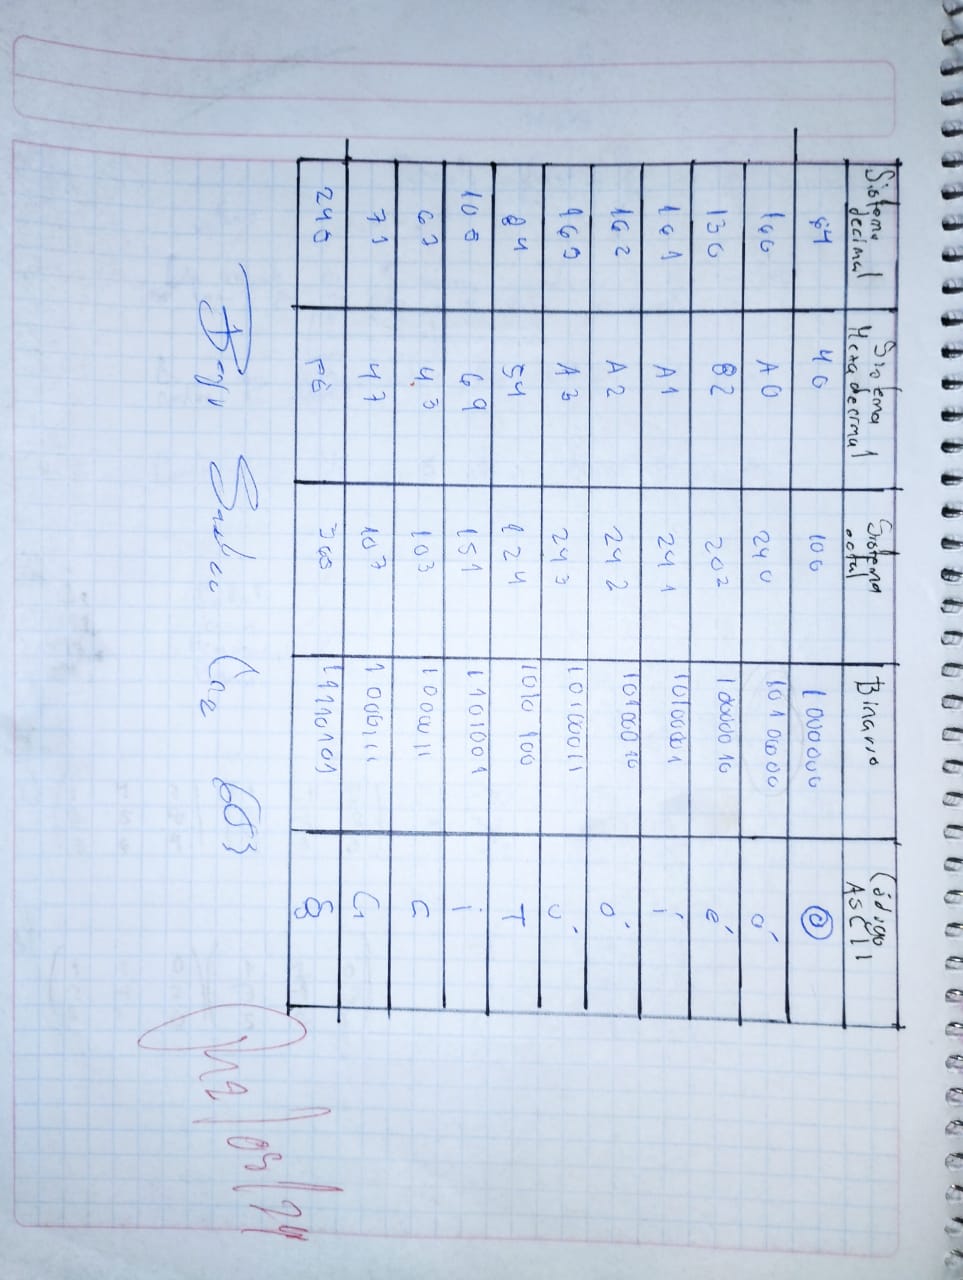 Sistema decimal Sistema Hexadecimal Sistema octal Binario Código ASCII
64 40 100 1000000 @
160 A0 240 10100000 á
130 82 202 10000010 é
161 A1 241 10100001 í
162 A2 242 10100010 ó
163 A3 243 10100011 ú
84 54 124 1010100 T
105 69 151 1101001 i
67 43 103 1000011 C
71 47 107 1000111 G
245 365 11110101 §
603